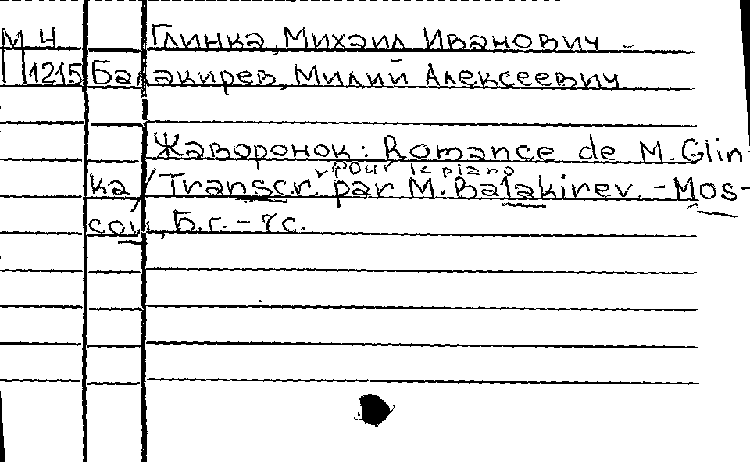 М Ч Глинка, Михаил Иванович -
П 1215 Балакирев, Милий Алексеевич
Жаворонок: Romance de M. Glin-
pour le piano
ka / Transcr. par M. Balakirev. - Mos-
cou, Б.г. - 7 с.